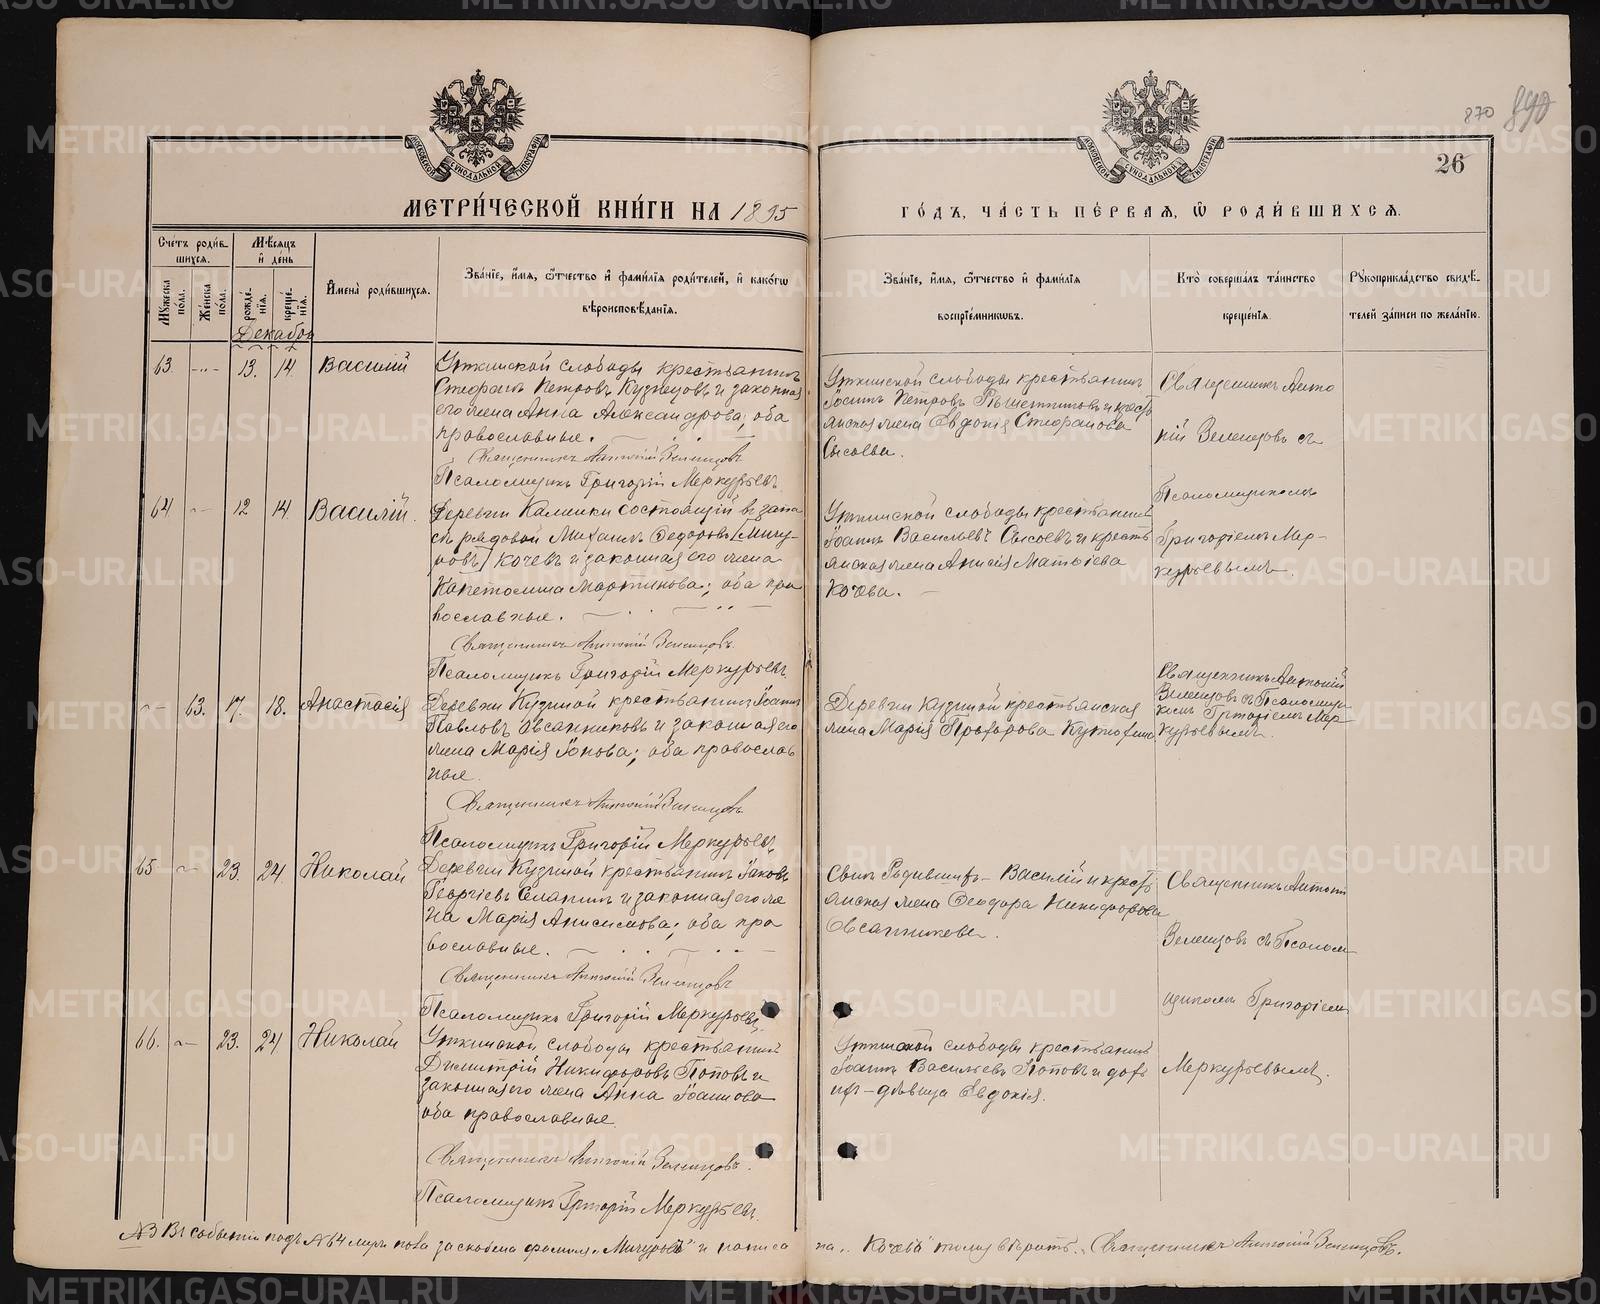 870 890
26
МОСКОВСКОЙ СѴНОДАЛЬНОЙ ТИПОГРАФІИ
МОСКОВСКОЙ СѴНОДАЛЬНОЙ ТИПОГРАФІИ
МЕТРИ́ЧЕСКОЙ КНИ́ГИ НА 1895
ГО́ДЪ, ЧА́СТЬ ПЕ́РВАЯ, Ѽ РОДИ́ВШИХСЯ.
Сче́тъ роди́в-
шихся.
Му́жеска по́ла.
Же́нска по́ла.
Мѣ́сяцъ
и҆ де́нь
рожде́-
нїя.
креще́-
нїя.
И҆мена̀ роди́вшихся.
Зва́нїе, и҆́мя, ѻ҆́тчество и҆ фами́лїя роди́телей, и҆ како́гѡ
вѣроисповѣ́данїя.
Зва́нїе, и҆́мя, ѻ҆́тчество и҆ фами́лїя
воспрїе́мникѡвъ.
Кто̀ соверша́лъ та́инство
креще́нїя.
Рꙋкоприкла́дство свидѣ́-
телей за́писи по жела́нїю.
Декабрь
63. -„- 13. 14. Василій
Уткинской слободы крестьянинъ
Стефанъ Петровъ Кузнецовъ и законная
его жена Анна Александрова; оба
православные.
Священникъ Антоній Зеленцовъ
Псаломщикъ Григорій Меркурьевъ.
Уткинской слободы крестьянинъ
Іоаннъ Петровъ Рѣшетниковъ и кресть
янская жена Евдокія Стефанова
Сысоева.
Священникъ Анто
ній Зеленцовъ съ
Псаломщикомъ
Григоріемъ Мер-
курьевымъ.
64 -„- 12 14. Василій.
Деревни Каменки состоящій въ запа
сѣ рядовой Михаилъ Ѳедоровъ [Мичу-
ровъ] Кочевъ и законная его жена
Капетолина Мартинова; оба пра
вославные.
Священникъ Антоній Зеленцовъ.
Псаломщикъ Григорій Меркурьевъ.
Уткинской слободы крестьянинъ
Іоаннъ Васильевъ Сысоевъ и кресть
янская жена Анисія Матѳіева
Кочева.
-„- 63. 17. 18. Анастасія
Деревни Кузиной крестьянинъ Іоаннъ
Павловъ Овсянниковъ и законная его
жена Марія Іонова; оба православ
ные.
Священникъ Антоній Зеленцовъ
Псаломщикъ Григорій Меркурьевъ.
Деревни Кузиной крестьянская
жена Марія Прохорова
Священникъ Антоній
Зеленцовъ съ Псаломщи
комъ Григоріемъ Мер-
курьевымъ.
65 -„- 23. 24. Николай
Деревни Кузиной крестьянинъ Іаковъ
Георгіевъ и законная его же
на Марія Анисимова; оба пра
вославные.
Священникъ Антоній Зеленцовъ
Псаломщикъ Григорій Меркурьевъ.
Василій и кресть
янская жена Ѳеодора Никифорова
Овсянникова.
Священникъ Антоній
Зеленцовъ съ Псалом
щикомъ Григоріемъ
Меркурьевымъ.
66. -„- 23. 24 Николай
Уткинской слободы крестьянинъ
Димитрій Никифоровъ Поповъ и
законная его жена Анна Іоаннова
оба православные.
Священникъ Антоній Зеленцовъ.
Псаломщикъ Григорій Меркурьевъ.
Уткинской слободы крестьянинъ
Іоаннъ Васильевъ Поповъ и дочь
его - дѣвица Евдокія.
NB Въ событіи подъ №64 мною заскоблена фамилія „Мичуровъ" и написа
на „Кочевъ" тому вѣрить. Священникъ Антоній Зеленцовъ.
METRIKI.GASO-URAL.RU